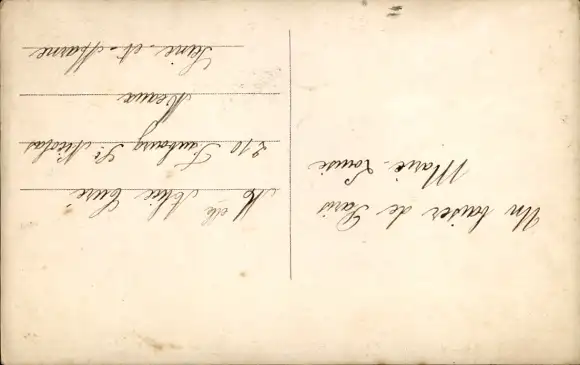 Un baiser de Paris
Marie-Louise
Melle Curé
210 Faubourg St Nicolas
Meaux
Seine-et-Marne